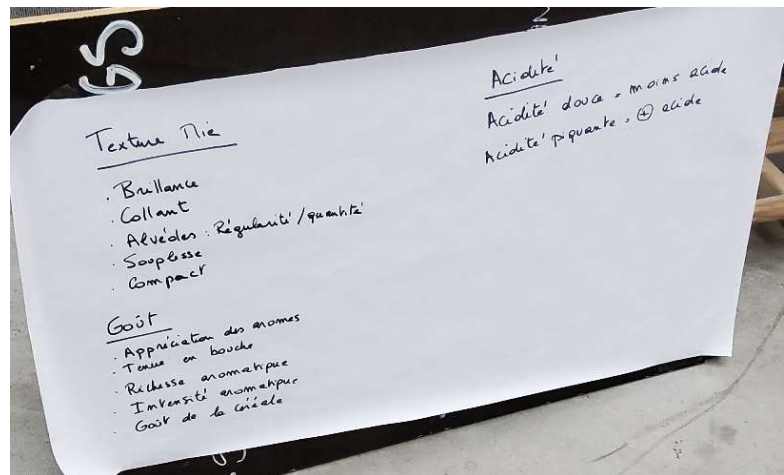 Texture Mie
. Brillance
. Collant
. Alvéoles : Régularité / quantité
. Souplesse
. Compact
Goût
. Appréciation des aromes
. Tenue en bouche
. Richesse aromatique
. Intensité aromatique
. Goût de la céréale
Acidité
Acidité douce = moins acide
Acidité piquante = ⊕ acide